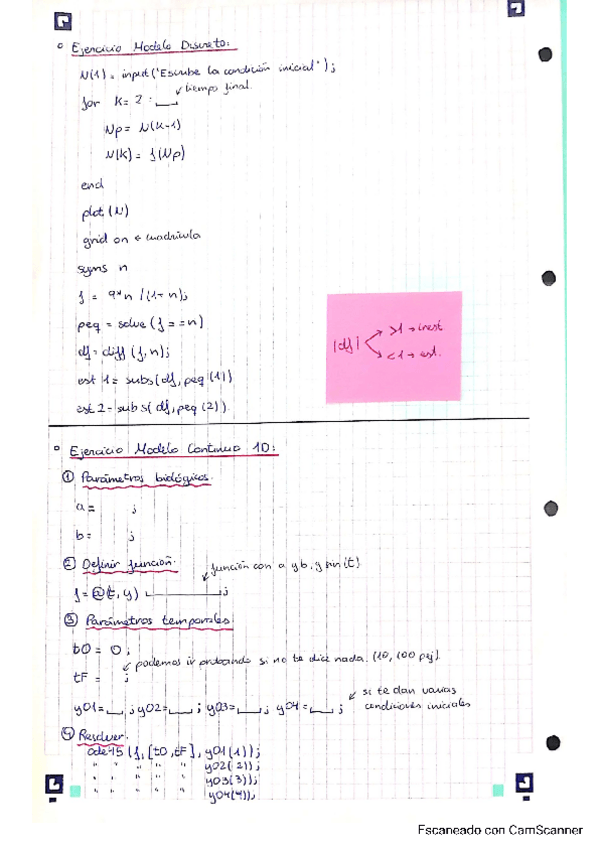 ° Ejercicio Modelo Discreto:
N(1) = input('Escribe la condición inicial');
tiempo final.
for k = 2 : __
Np = N(k-1)
N(k) = f(Np)
end
plot (N)
grid on ← cuadrícula
syms n
f = 9*n /(1+n);
peq = solve (f == n)
df = diff (f, n);
est 1 = subs(df, peq (1))
est 2 = subs( df, peq (2))
|df| >1 → inest
<1 → est.
° Ejercicio Modelo Continuo 1D:
① Parámetros biológicos.
a = ;
b = ;
② Definir función.
función con a y b, y sin(t)
f = @(t, y) ________;
③ Parámetros temporales
t0 = 0 ;
podemos ir probando si no te dice nada. (10, 100 pej)
tF = ;
y01 = __ ; y02 = __ ; y03 = __ ; y04 = __ ;
si te dan varias
condiciones iniciales
④ Resolver.
ode45 (f, [t0, tF], y01(1));
" " " " y02(2));
" " " " y03(3));
" " " " y04(4));
Escaneado con CamScanner